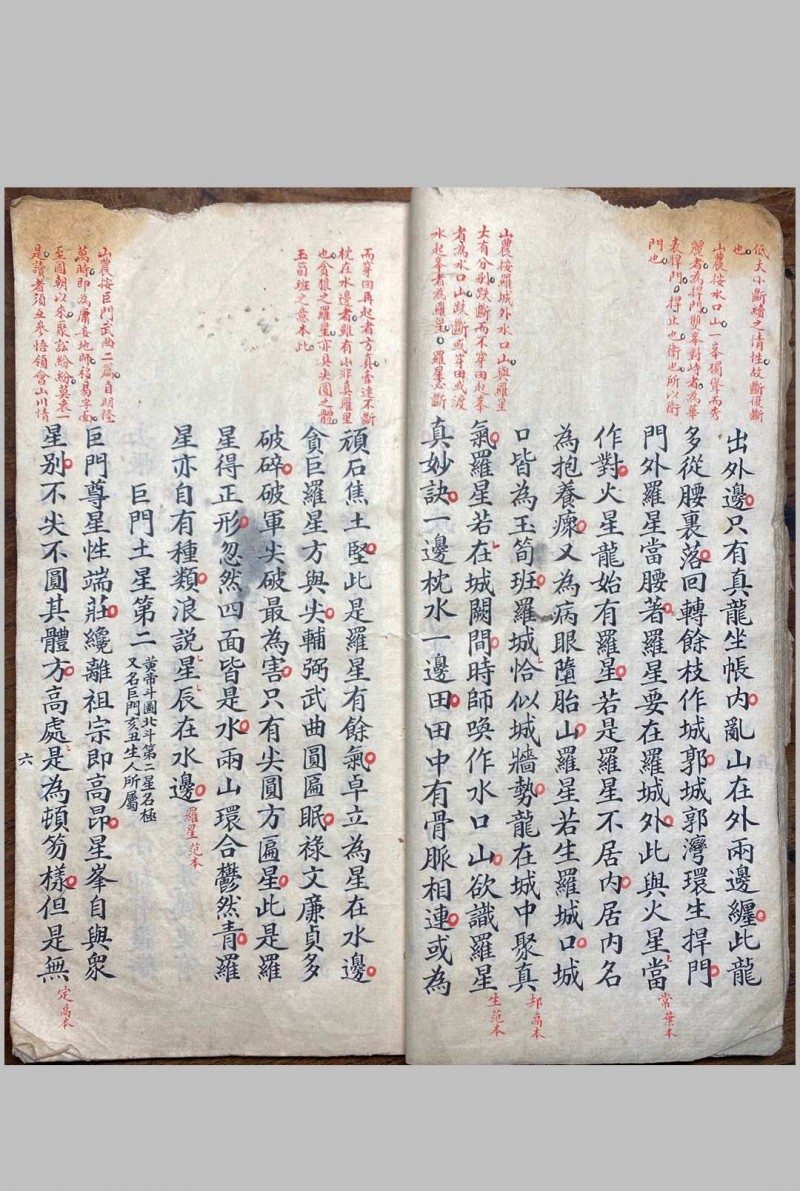 低大小斷續之清性故斷復斷
也
山農按水口山一峯獨聳而秀
麗者為捍門雙峯對峙者為華
表捍門捍止也衛也所以衛
門也
山農按羅城外水口山與羅星
大有分別跌斷而不穿田起峯
者為水口山跌斷或穿田或渡
水起峯者為羅星羅星忌斷
出外邊只有真龍坐帳內亂山在外兩邊纏此龍
多從腰裏落回轉餘枝作城郭城郭灣環生捍門
門外羅星當腰著羅星要在羅城外此與火星當
常葉本
作對火星龍始有羅星若是羅星不居內居內名
為抱養瘝又為病眼墮胎山羅星若生羅城口城
口皆為玉筍班羅城恰似城牆勢龍在城中聚真
却高本
氣羅星若在城闕間時師喚作水口山欲識羅星
生范本
真妙訣一邊枕水一邊田田中有骨脈相連或為
而穿田再起者方真壹連不斷
枕在水邊者雖有小非真羅星
也貪狼之羅星亦具尖圓之體
玉筍班之意本此
山農按巨門武曲二篇自明隆
萬時即為庸妄地師移易字面
至國朝以來聚訟紛紛莫衷一
是讀者須互參悟領會山川情
頑石焦土堅此是羅星有餘氣卓立為星在水邊
貪巨羅星方與尖輔弼武曲圓匾眠祿文廉貞多
破碎破軍尖破最為害只有尖圓方匾星此是羅
星得正形忽然四面皆是水兩山環合鬱然青羅
星亦自有種類浪說星辰在水邊
羅星范本
巨門土星第二
黃帝斗圖北斗第二星名極
又名巨門亥丑生人所屬
巨門尊星性端莊纔離祖宗即高昂星峯自與衆
星別不尖不圓其體方高處是為頓笏樣但是無
定高本
六